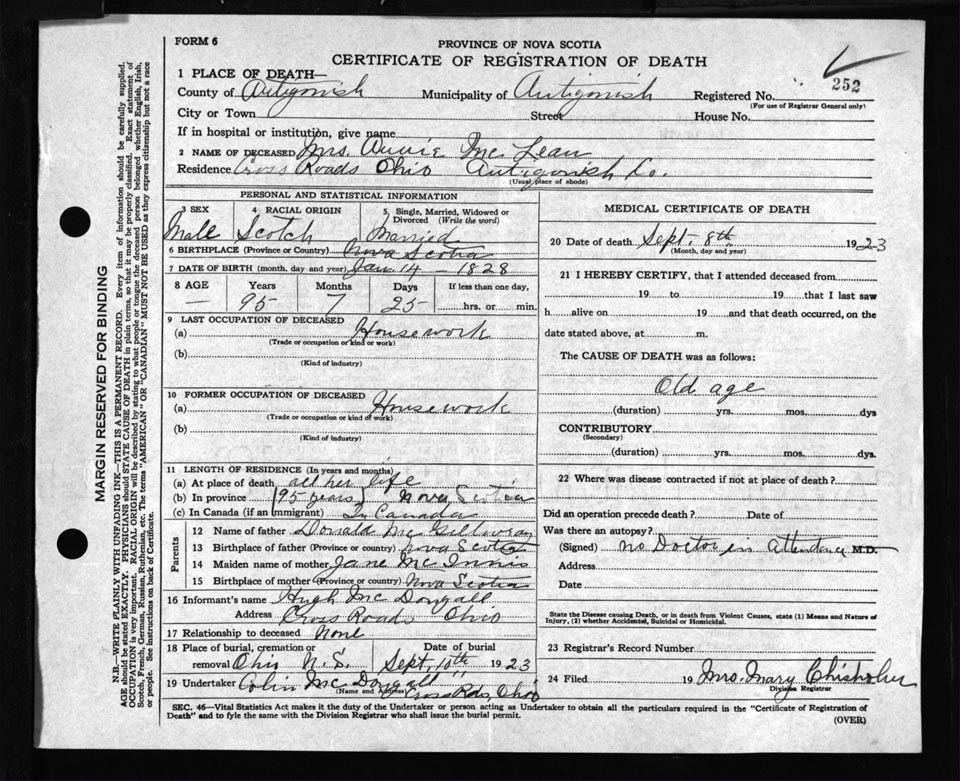 FORM 6
PROVINCE OF NOVA SCOTIA
CERTIFICATE OF REGISTRATION OF DEATH
252
1 PLACE OF DEATH—
County of Antigonish Municipality of Antigonish Registered No.
(For use of Registrar General only)
City or Town Street House No.
If in hospital or institution, give name
2 NAME OF DECEASED Mrs. Annie McLean
Residence Cross Roads Ohio Antigonish Co.
(Usual place of abode)
PERSONAL AND STATISTICAL INFORMATION
3 SEX 4 RACIAL ORIGIN 5 Single, Married, Widowed or Divorced (Write the word)
Male Scotch Married
6 BIRTHPLACE (Province or Country) Nova Scotia
7 DATE OF BIRTH (month, day and year) Jan 14 – 1828
8 AGE Years Months Days If less than one day,
— 95 7 25 hrs. or min.
9 LAST OCCUPATION OF DECEASED
(a) Housework
(Trade or occupation or kind of work)
(b)
(Kind of industry)
10 FORMER OCCUPATION OF DECEASED
(a) Housework
(Trade or occupation or kind of work)
(b)
(Kind of industry)
11 LENGTH OF RESIDENCE (In years and months)
(a) At place of death all her life
(b) In province (95 years) Nova Scotia
(c) In Canada (if an immigrant) In Canada
Parents
12 Name of father Donald McGillivray
13 Birthplace of father (Province or country) Nova Scotia
14 Maiden name of mother Jane McInnis
15 Birthplace of mother (Province or country) Nova Scotia
16 Informant's name Hugh McDougall
Address Cross Roads Ohio
17 Relationship to deceased None
18 Place of burial, cremation or removal Date of burial
Ohio N.S. Sept. 10th 1923
19 Undertaker Colin McDougall Cross Rds Ohio
(Name and Address)
MEDICAL CERTIFICATE OF DEATH
20 Date of death Sept. 8th 1923
(Month, day and year)
21 I HEREBY CERTIFY, that I attended deceased from
19 to 19 that I last saw
h alive on 19 and that death occurred, on the
date stated above, at m.
The CAUSE OF DEATH was as follows:
Old age
(duration) yrs. mos. dys
CONTRIBUTORY
(Secondary)
(duration) yrs. mos. dys.
22 Where was disease contracted if not at place of death?
Did an operation precede death? Date of
Was there an autopsy?
(Signed) no Doctor in attendance M.D.
Address
Date
State the Disease causing Death, or in death from Violent Causes, state (1) Means and Nature of
Injury, (2) whether Accidental, Suicidal or Homicidal.
23 Registrar's Record Number
24 Filed 19 Mrs. Mary Chisholm
Division Registrar
SEC. 46—Vital Statistics Act makes it the duty of the Undertaker or person acting as Undertaker to obtain all the particulars required in the "Certificate of Registration of
Death" and to fyle the same with the Division Registrar who shall issue the burial permit.
(OVER)
MARGIN RESERVED FOR BINDING
N.B.—WRITE PLAINLY WITH UNFADING INK—THIS IS A PERMANENT RECORD. Every item of information should be carefully supplied.
AGE should be stated EXACTLY. PHYSICIANS should STATE CAUSE OF DEATH in plain terms, so that it may be properly classified. Exact statement of
OCCUPATION is very important. RACIAL ORIGIN will be described by stating to what people or tongue the deceased person belonged whether English, Irish,
Scotch, French, German, Russian, Ruthenian, etc. The terms "AMERICAN" OR "CANADIAN" MUST NOT BE USED as they express citizenship but not a race
or people. See instructions on back of Certificate.